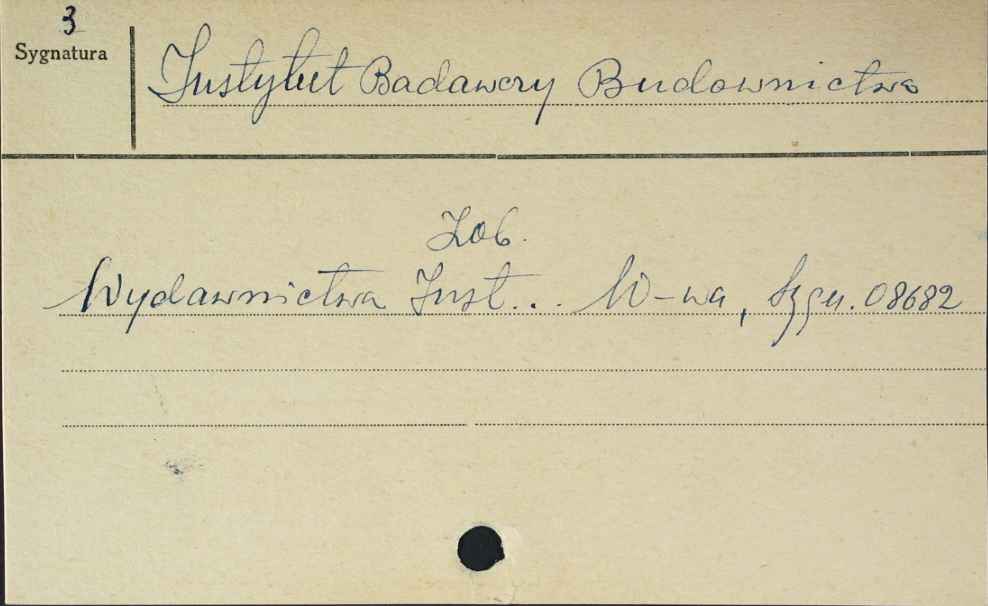 3
Sygnatura
Instytut Badawczy Budownictwa
Zob.
Wydawnictwa Inst... W-wa, Sygn. 08682